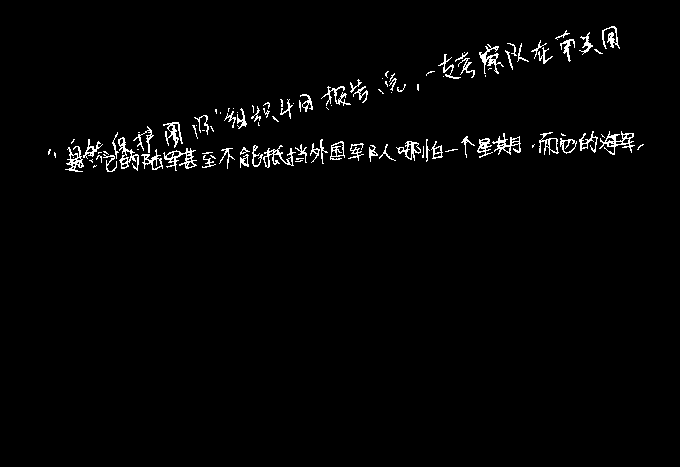 “自然保护国际”组织4日报告说，一支考察队在南美国
是：它的陆军甚至不能抵挡外国军队哪怕一个星期，而它的海军，